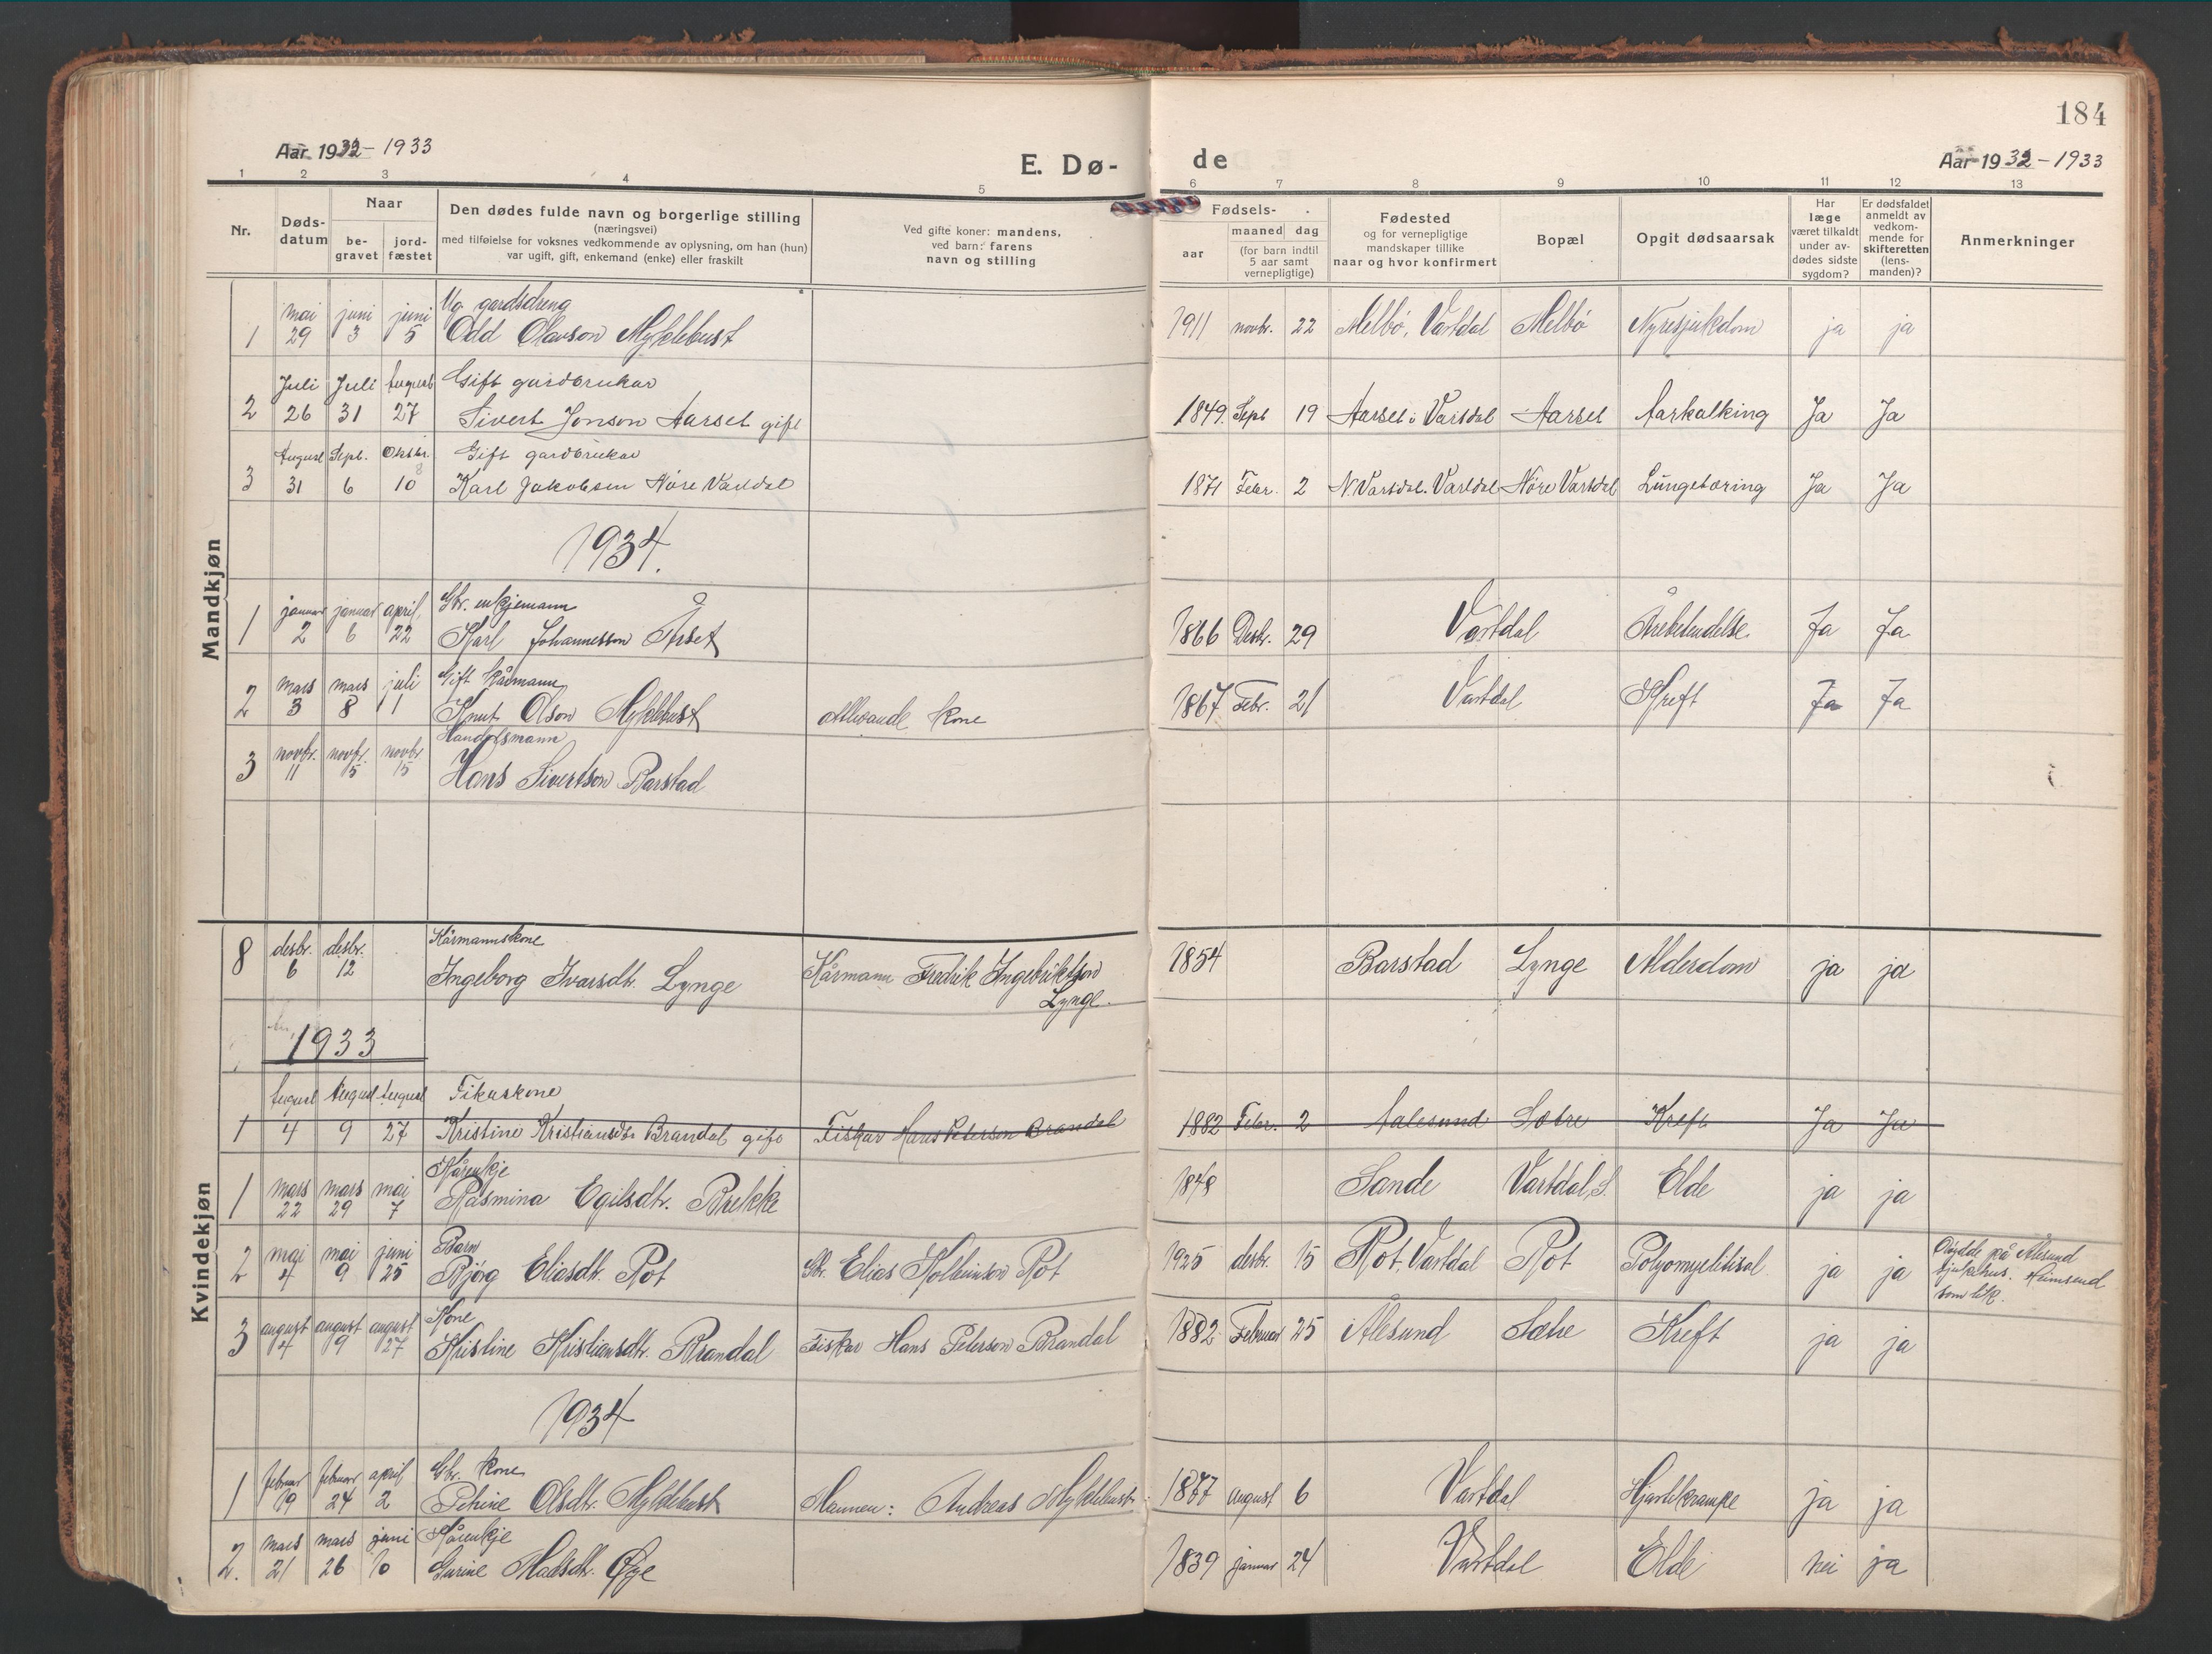 184
Aar 1932 - 1933
E. Dø-
de
Aar 1932 - 1933
1 2 3 4 5 6 7 8 9 10 11 12 13
Nr.
Døds-
datum
Naar
be-
gravet
jord-
fæstet
Den dødes fulde navn og borgerlige stilling
(næringsvei)
med tilføielse for voksnes vedkommende av oplysning, om han (hun)
var ugift, gift, enkemand (enke) eller fraskilt
Ved gifte koner: mandens,
ved barn: farens
navn og stilling
Fødsels-
aar
maaned dag
(for barn indtil
5 aar samt
vernepligtige)
Fødested
og for vernepligtige
mandskaper tillike
naar og hvor konfirmert
Bopæl
Opgit dødsaarsak
Har
læge
været tilkaldt
under av-
dødes sidste
sygdom?
Er dødsfaldet
anmeldt av
vedkom-
mende for
skifteretten
(lens-
manden)?
Anmerkninger
Mandkjøn
mai juni juni Ug gardsdreng
1 29 3 5 Odd Olavson Myklebust 1911 novbr. 22 Melbö, Vartdal Melbö Nyresjukdom ja ja
Juli Juli August Gift gardbrukar
2 26 31 27 Sivert Jonson Aarset gift 1849. Sept 19 Aarset i Vartdal Aarset Aarkalking Ja Ja
August Sept. Oktbr. Gift gardbrukar
3 31 6 10 Karl Jakobsen Nöre Vartdal 1871 Febr. 2 N. Vartdal. Vartdal Nöre Vartdal Lungetæring Ja Ja
1934.
januar januar april Gbr. enkjemann
1 2 6 22 Karl Johannesson Årset 1866 Desbr. 29 Vartdal Årebetendelse. Ja Ja
mars mars juli Gift kårmann
2 3 8 11 Knut Olson Myklebust attlivande kone 1867 Febr. 21 Vartdal Kreft Ja Ja
novbr. novbr. novbr. Handelsmann
3 11 15 15 Hans Sivertson Barstad
Kvindekjøn
desbr. desbr. Kårmannskone
8 6 12 Ingeborg Ivarsdtr. Lynge Kårmann Fredrik Ingebriktson 1854 Barstad Lynge Alderdom ja ja
Lynge.
1933
August August August Fiskarkone
1 4 9 27 Kristine Kristiansdtr Brandal gift Fiskar Hans Peterson Brandal 1882 Febr. 2 Aalesund Sætre Kreft Ja Ja
Kårenkje
1 mars 22 mars 29 mai 7 Rasmina Egilsdtr. Brekke 1848 Sande Vartdal, S. Elde ja ja
Barn
2 mai 4 mai 9 juni 25 Bjørg Eliasdtr. Rot Gbr. Elias Kolbeinson Rot 1925 desbr. 15 Rot, Vartdal Rot Polyomyelitisal ja ja Døydde på Ålesund
sjukehus. Heimsend
som lik.
Kone
3 august 4 august 9 august 27 Kristine Kristiansdtr. Brandal Fiskar Hans Peterson Brandal 1882 Februar 25 Ålesund Sætre Kreft ja ja
1934
februar februar april Gbr. kone
1 19 24 2 Petrine Olsdtr. Myklebust Mannen: Andreas Myklebust 1877 august 6 Vartdal Hjartekrampe ja ja
mars mars juni Kårenkje
2. 21 26 10 Gurine Madsdtr. Øye 1839 januar 24 Vartdal Elde nei ja